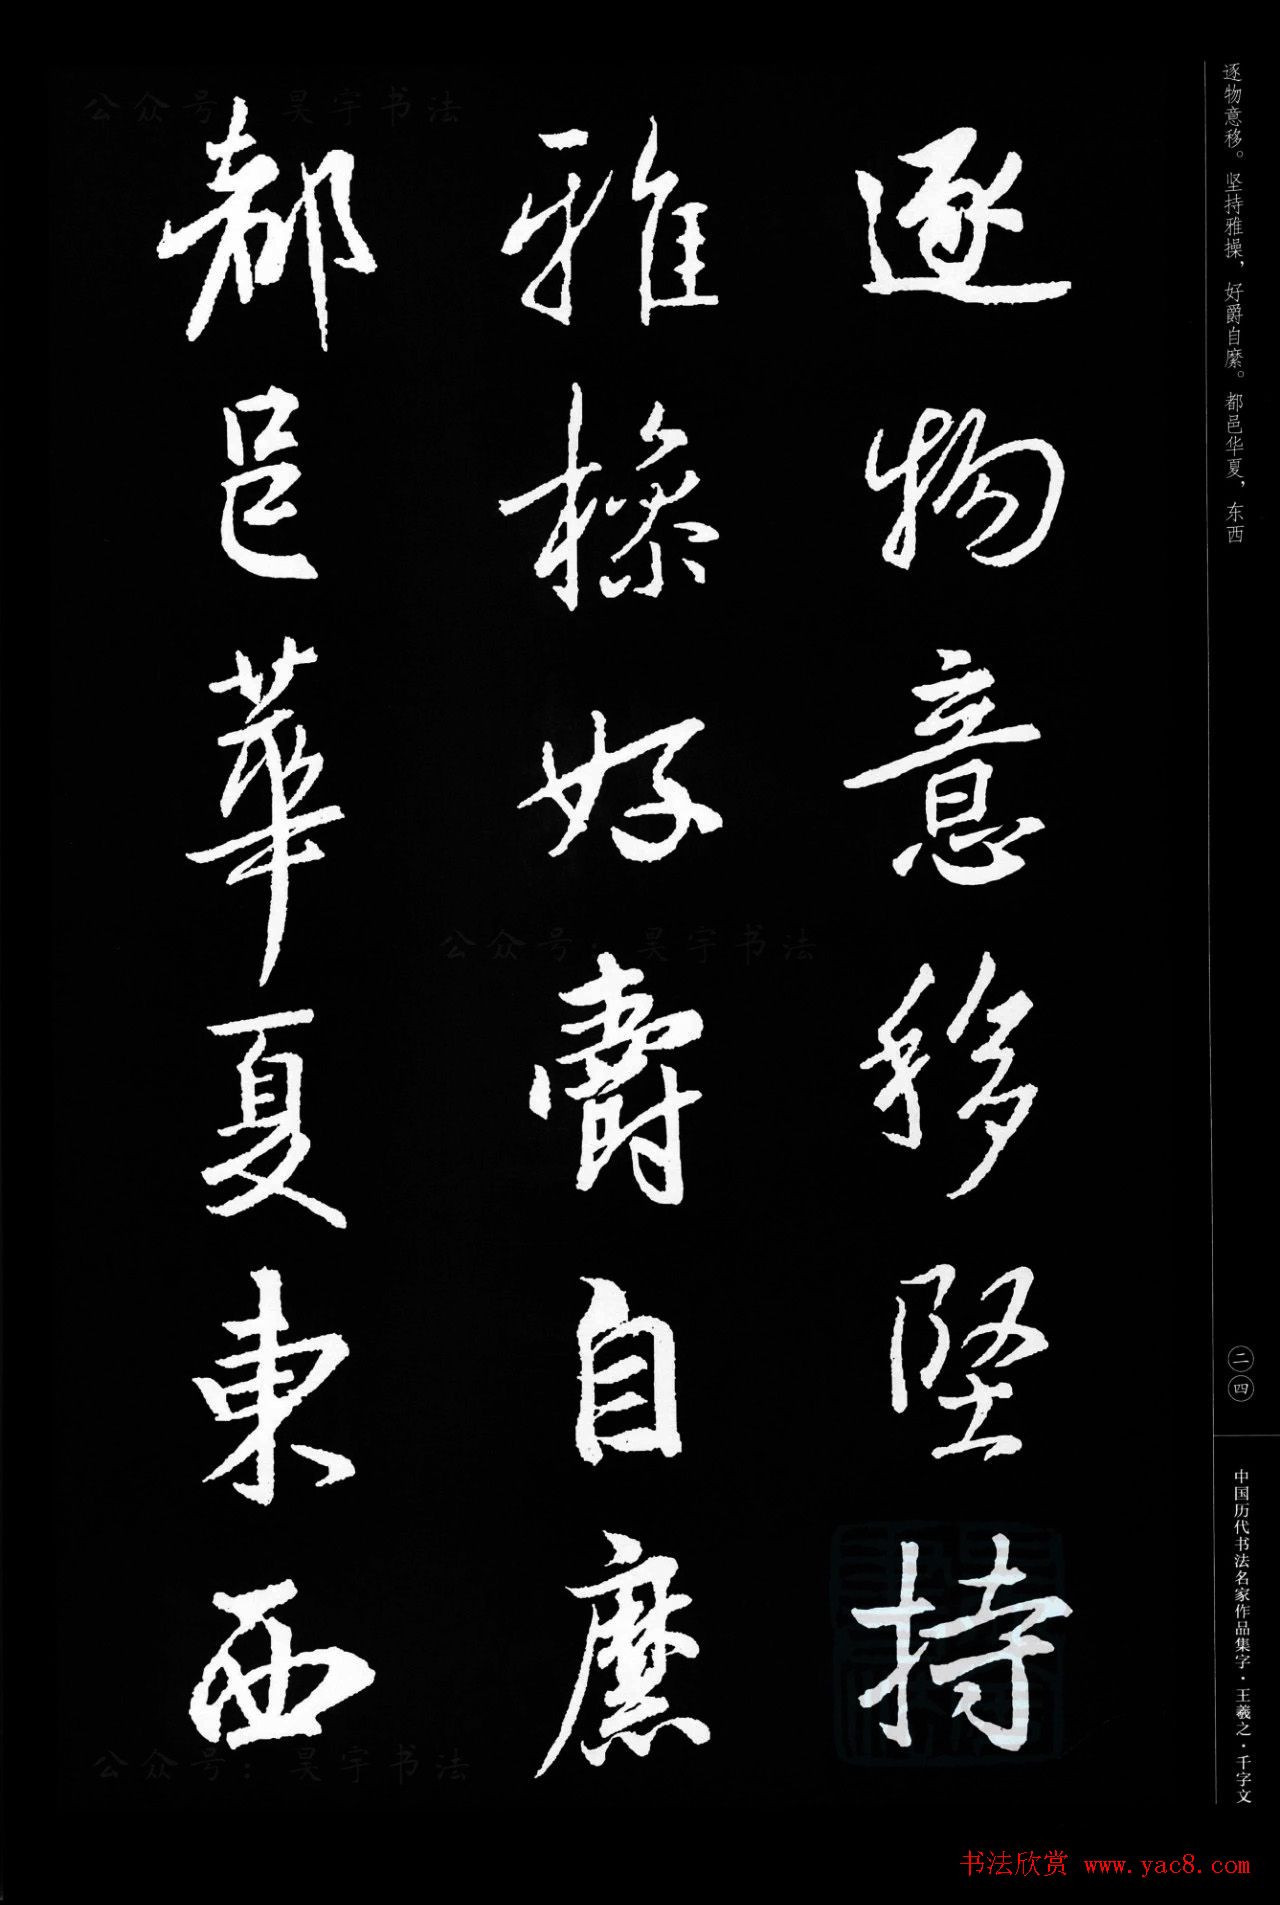 逐物意移。坚持雅操，好爵自縻。都邑华夏，东西
二四
中国历代书法名家作品集字·王羲之·千字文
逐物意移堅持
雅操好爵自縻
都邑華夏東西
公众号：昊宇书法
公众号：昊宇书法
公众号：昊宇书法
书法欣赏 www.yac8.com